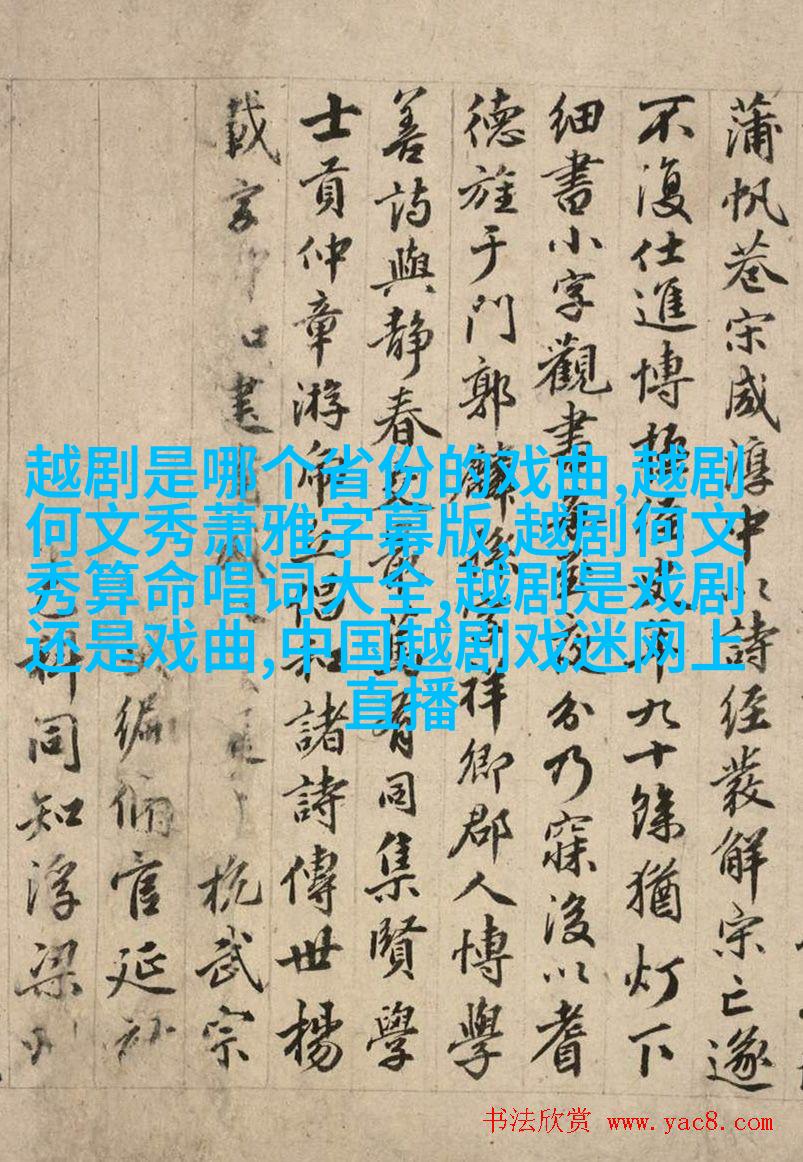 蒲帆巷宋咸淳中以詩经發解宋亡遂
不復仕進博極年九十餘猶灯下
細書小字觀書每至夜分乃寐後以耆
德旌于門郭麟孫字祥卿郡人博學
善詩與静春有同集賢學
士貢仲章游和諸詩傳世楊
載字杭武宗
編脩官延祐
科同知浮梁州
越剧是哪个省份的戏曲,越剧
何文秀萧雅字幕版,越剧何文
秀算命唱词大全,越剧是戏剧
还是戏曲,中国越剧戏迷网上
直播
书法欣赏 www.yac8.com